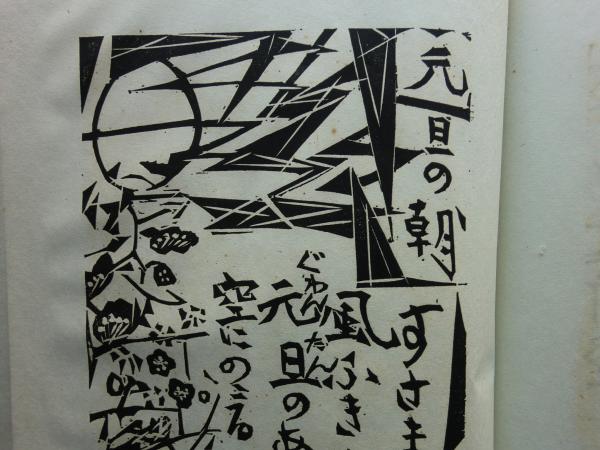 元旦の朝
すさま
風ふき
ぐわんたん
元旦のあ
空にのこる